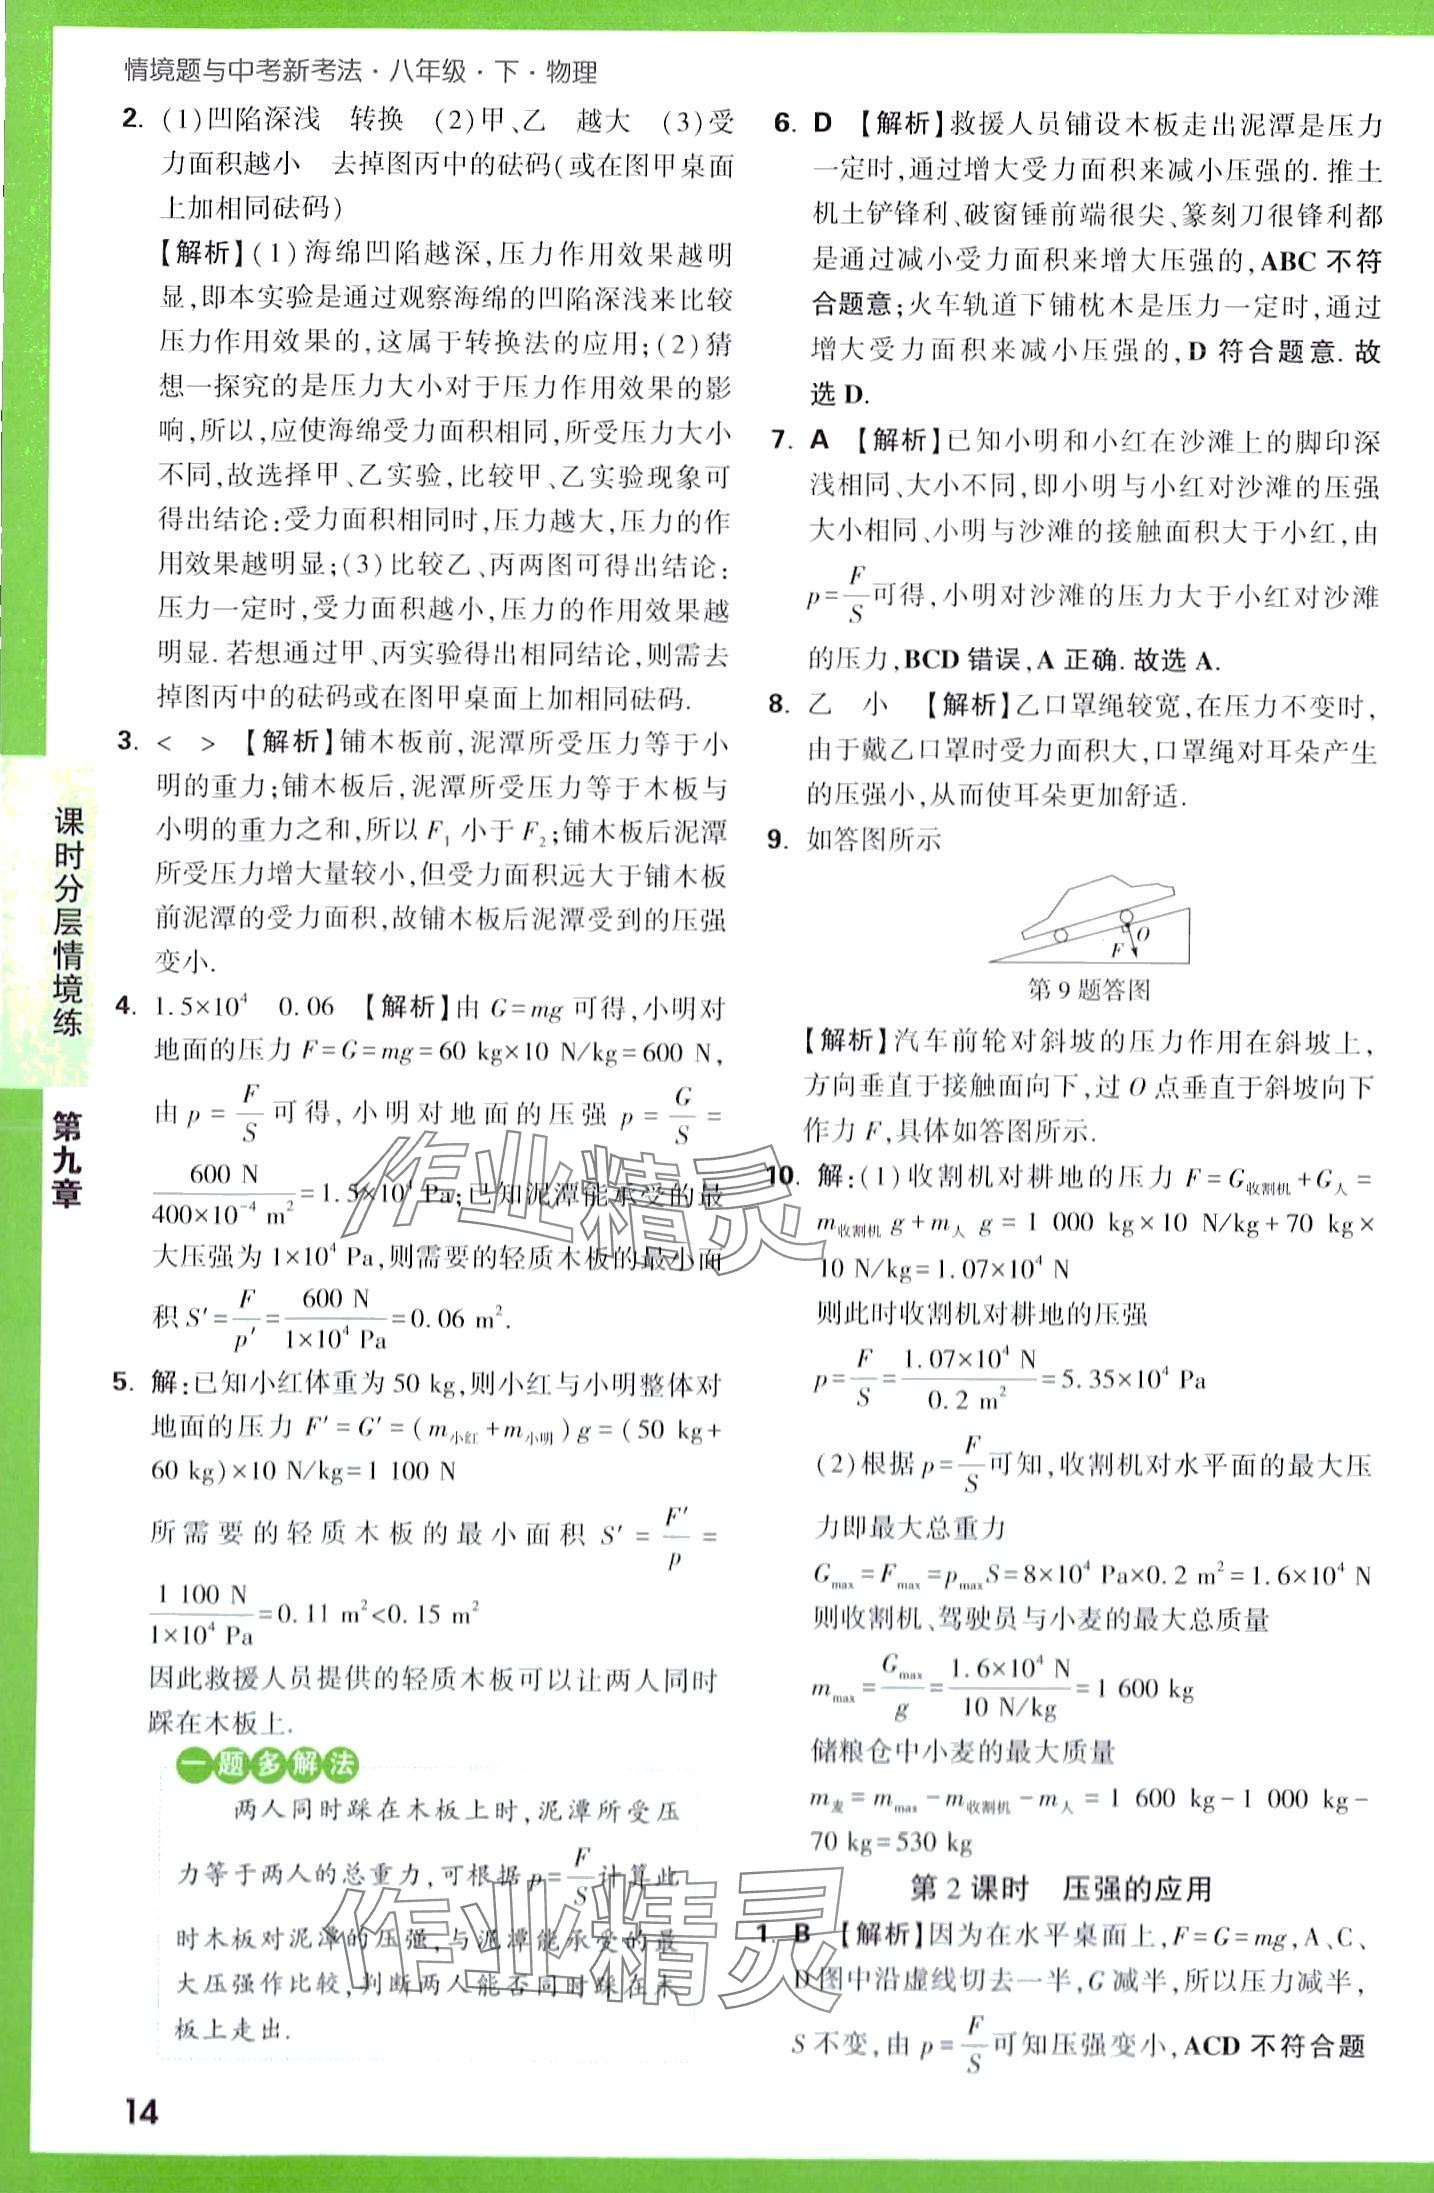 情境题与中考新考法·八年级·下·物理
2. (1)凹陷深浅　转换　(2)甲、乙　越大　(3)受
力面积越小　去掉图丙中的砝码(或在图甲桌面
上加相同砝码)
【解析】(1)海绵凹陷越深,压力作用效果越明
显,即本实验是通过观察海绵的凹陷深浅来比较
压力作用效果的,这属于转换法的应用;(2)猜
想一探究的是压力大小对于压力作用效果的影
响,所以,应使海绵受力面积相同,所受压力大小
不同,故选择甲、乙实验,比较甲、乙实验现象可
得出结论:受力面积相同时,压力越大,压力的作
用效果越明显;(3)比较乙、丙两图可得出结论:
压力一定时,受力面积越小,压力的作用效果越
明显.若想通过甲、丙实验得出相同结论,则需去
掉图丙中的砝码或在图甲桌面上加相同砝码.
3. <　>　【解析】铺木板前,泥潭所受压力等于小
明的重力;铺木板后,泥潭所受压力等于木板与
小明的重力之和,所以 F₁ 小于 F₂;铺木板后泥潭
所受压力增大量较小,但受力面积远大于铺木板
前泥潭的受力面积,故铺木板后泥潭受到的压强
变小.
4. 1.5×10⁴　0.06　【解析】由 G=mg 可得,小明对
地面的压力 F=G=mg=60 kg×10 N/kg=600 N,
由 p = F/S 可得,小明对地面的压强 p = G/S =
600 N/(400×10⁻⁴ m²)=1.5×10⁴ Pa;已知泥潭能承受的最
大压强为 1×10⁴ Pa,则需要的轻质木板的最小面
积 S′=F/p′=600 N/(1×10⁴ Pa)=0.06 m².
5. 解:已知小红体重为 50 kg,则小红与小明整体对
地面的压力 F′=G′=(m小红+m小明)g=(50 kg+
60 kg)×10 N/kg=1 100 N
所需要的轻质木板的最小面积 S′ = F′/p =
1 100 N/(1×10⁴ Pa)=0.11 m²<0.15 m²
因此救援人员提供的轻质木板可以让两人同时
踩在木板上.
一题多解法
两人同时踩在木板上时,泥潭所受压
力等于两人的总重力,可根据 p=F/S 计算此
时木板对泥潭的压强,与泥潭能承受的最
大压强作比较,判断两人能否同时踩在木
板上走出.
课时分层情境练
第九章
14
6. D　【解析】救援人员铺设木板走出泥潭是压力
一定时,通过增大受力面积来减小压强的.推土
机土铲锋利、破窗锤前端很尖、篆刻刀很锋利都
是通过减小受力面积来增大压强的,ABC 不符
合题意;火车轨道下铺枕木是压力一定时,通过
增大受力面积来减小压强的,D 符合题意.故
选 D.
7. A　【解析】已知小明和小红在沙滩上的脚印深
浅相同、大小不同,即小明与小红对沙滩的压强
大小相同、小明与沙滩的接触面积大于小红,由
p=F/S 可得,小明对沙滩的压力大于小红对沙滩
的压力,BCD 错误,A 正确.故选 A.
8. 乙　小　【解析】乙口罩绳较宽,在压力不变时,
由于戴乙口罩时受力面积大,口罩绳对耳朵产生
的压强小,从而使耳朵更加舒适.
9. 如答图所示
O
F
第 9 题答图
【解析】汽车前轮对斜坡的压力作用在斜坡上,
方向垂直于接触面向下,过 O 点垂直于斜坡向下
作力 F,具体如答图所示.
10. 解:(1)收割机对耕地的压力 F=G收割机+G人=
m收割机 g+m人 g=1 000 kg×10 N/kg+70 kg×
10 N/kg=1.07×10⁴ N
则此时收割机对耕地的压强
p=F/S=1.07×10⁴ N/0.2 m²=5.35×10⁴ Pa
(2)根据 p=F/S 可知,收割机对水平面的最大压
力即最大总重力
Gmax=Fmax=pmaxS=8×10⁴ Pa×0.2 m²=1.6×10⁴ N
则收割机、驾驶员与小麦的最大总质量
mmax=Gmax/g=1.6×10⁴ N/10 N/kg=1 600 kg
储粮仓中小麦的最大质量
m麦=mmax-m收割机-m人=1 600 kg-1 000 kg-
70 kg=530 kg
第 2 课时　压强的应用
1. B　【解析】因为在水平桌面上,F=G=mg,A、C、
D 图中沿虚线切去一半,G 减半,所以压力减半,
S 不变,由 p=F/S 可知压强变小,ACD 不符合题
作业精灵
作业精灵